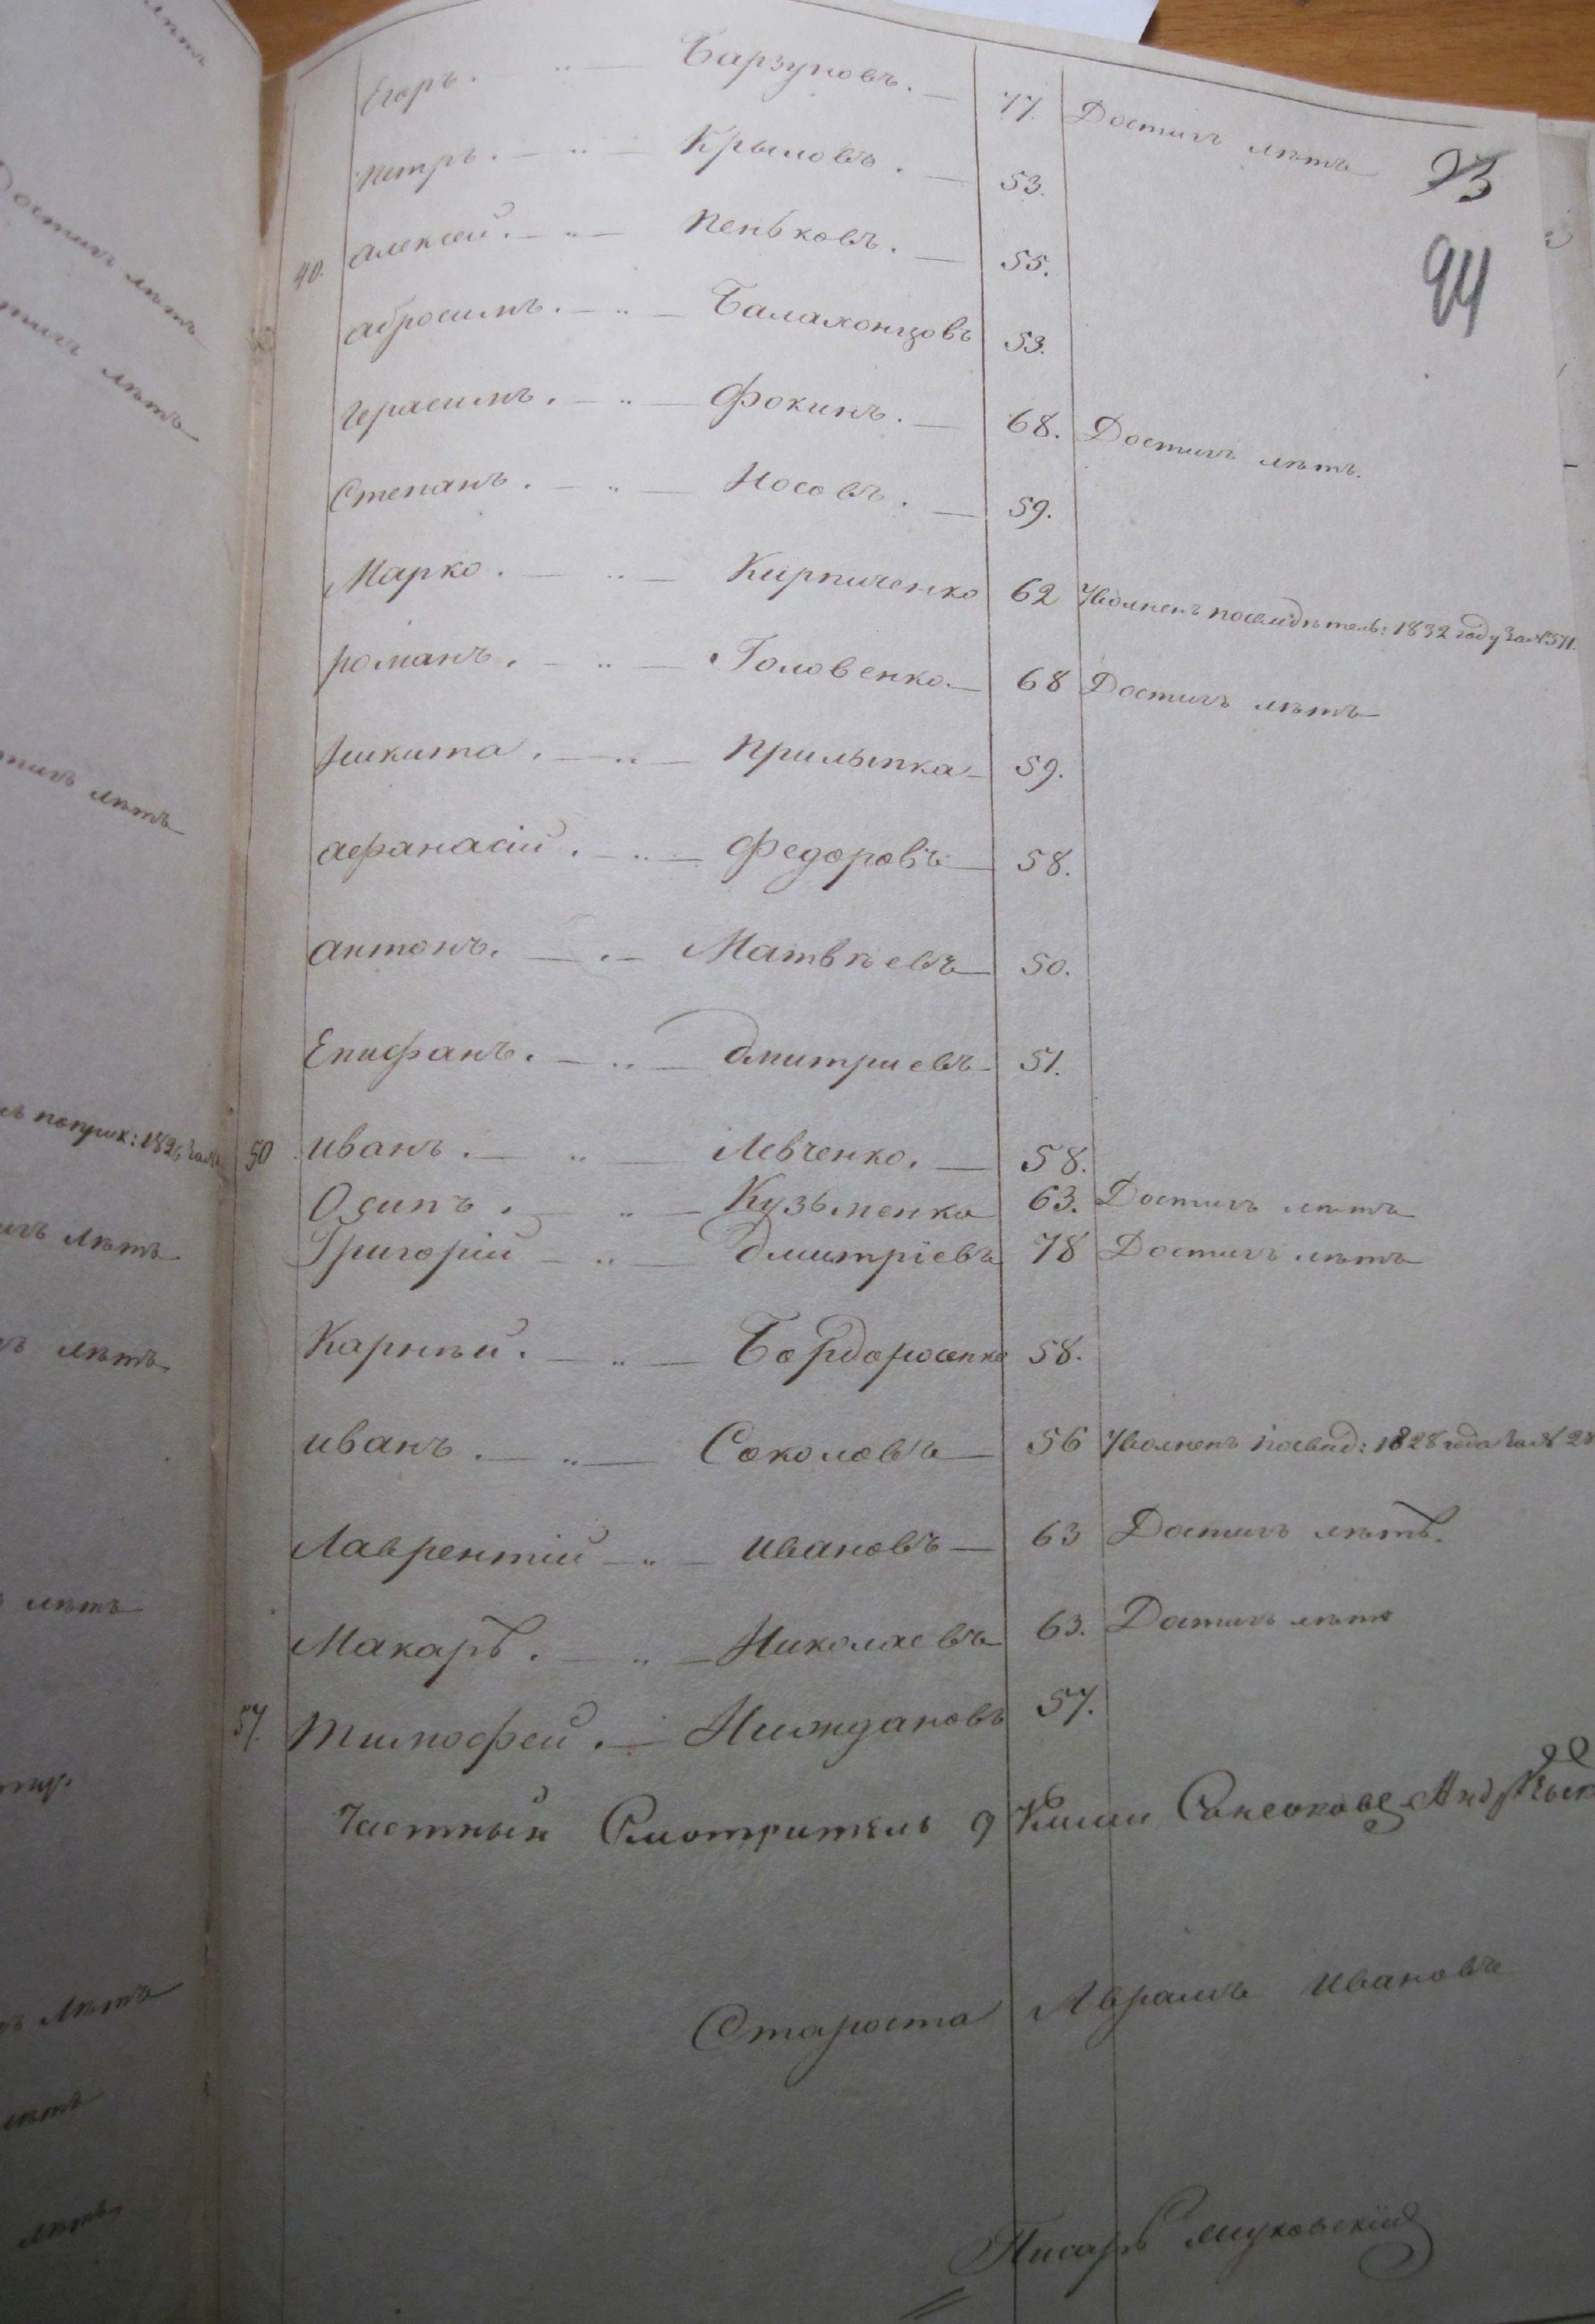 Егоръ. „ Барзуновъ. 77. Достигъ лѣтъ
23
Петръ. „ Крыловъ. 53.
94
40. алексей. „ Пеньковъ. 55.
абросимъ. „ Балахонцовъ 53.
Герасимъ. „ Фокинъ. 68. Достигъ лѣтъ.
Степанъ. „ Носовъ. 59.
Марко. „ Кирпиченко 62 Уволненъ 1832 году за №571.
романъ. „ Головенко. 68 Достигъ лѣтъ
Никита. „ Прилыпка 59.
афанасій. „ Федоровъ 58.
антонъ. „ Матвѣевъ 50.
Епифанъ. „ дмитриевъ 51.
50. иванъ. „ Левченко. 58.
Осипъ. „ Кузьменко 63. Достигъ лѣтъ
Григорій „ дмитріевъ 78 Достигъ лѣтъ
Карнѣй. „ 58.
иванъ. „ Соколовъ 56 Уволненъ посвид: 1828 года за № 28
Лаврентій „ ивановъ 63 Достигъ лѣтъ.
Макаръ. „ Николаевъ 63. Достигъ лѣтъ
57. Тимофей. Ниждановъ 57.
Частный Смотритель 9 Класи
Староста Аврамъ Ивановъ
Писарь